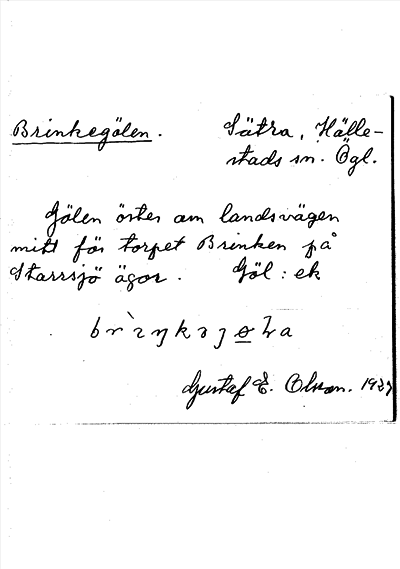 Brinkegölen. Sätra, Hälle-
stads sn. Ögl.
Gölen öster om landsvägen
mitt för torpet Brinken på
Starrsjö ägor. Göl: ek
Gustaf E. Olsson. 1937